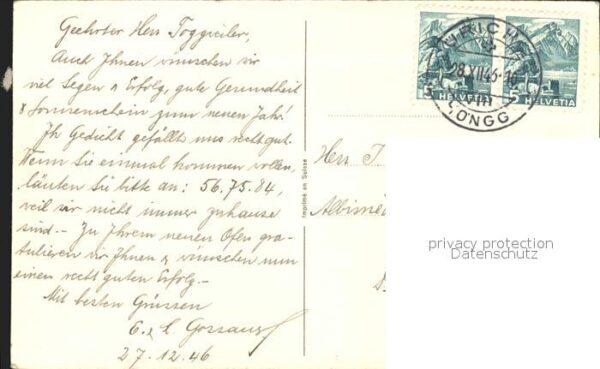 Geehrter Herr Toggweiler,
Auch Ihnen wünschen wir
viel Segen & Erfolg, gute Gesundheit
& Sonnenschein zum neuen Jahr!
Ihr Gedicht gefällt uns recht gut.
Wenn Sie einmal kommen wollen,
läuten Sie bitte an: 56.75.84,
weil wir nicht immer zuhause
sind. – Zu Ihrem neuen Ofen gra-
tulieren wir Ihnen & wünschen nun
einen recht guten Erfolg. –
Mit besten Grüssen
E. & E. Gossauer
27.12.46
Imprimé en Suisse
ZÜRICH
28.XII.46-16
VIII
HÖNGG
5 HELVETIA
5 HELVETIA
Herr T.
privacy protection
Datenschutz